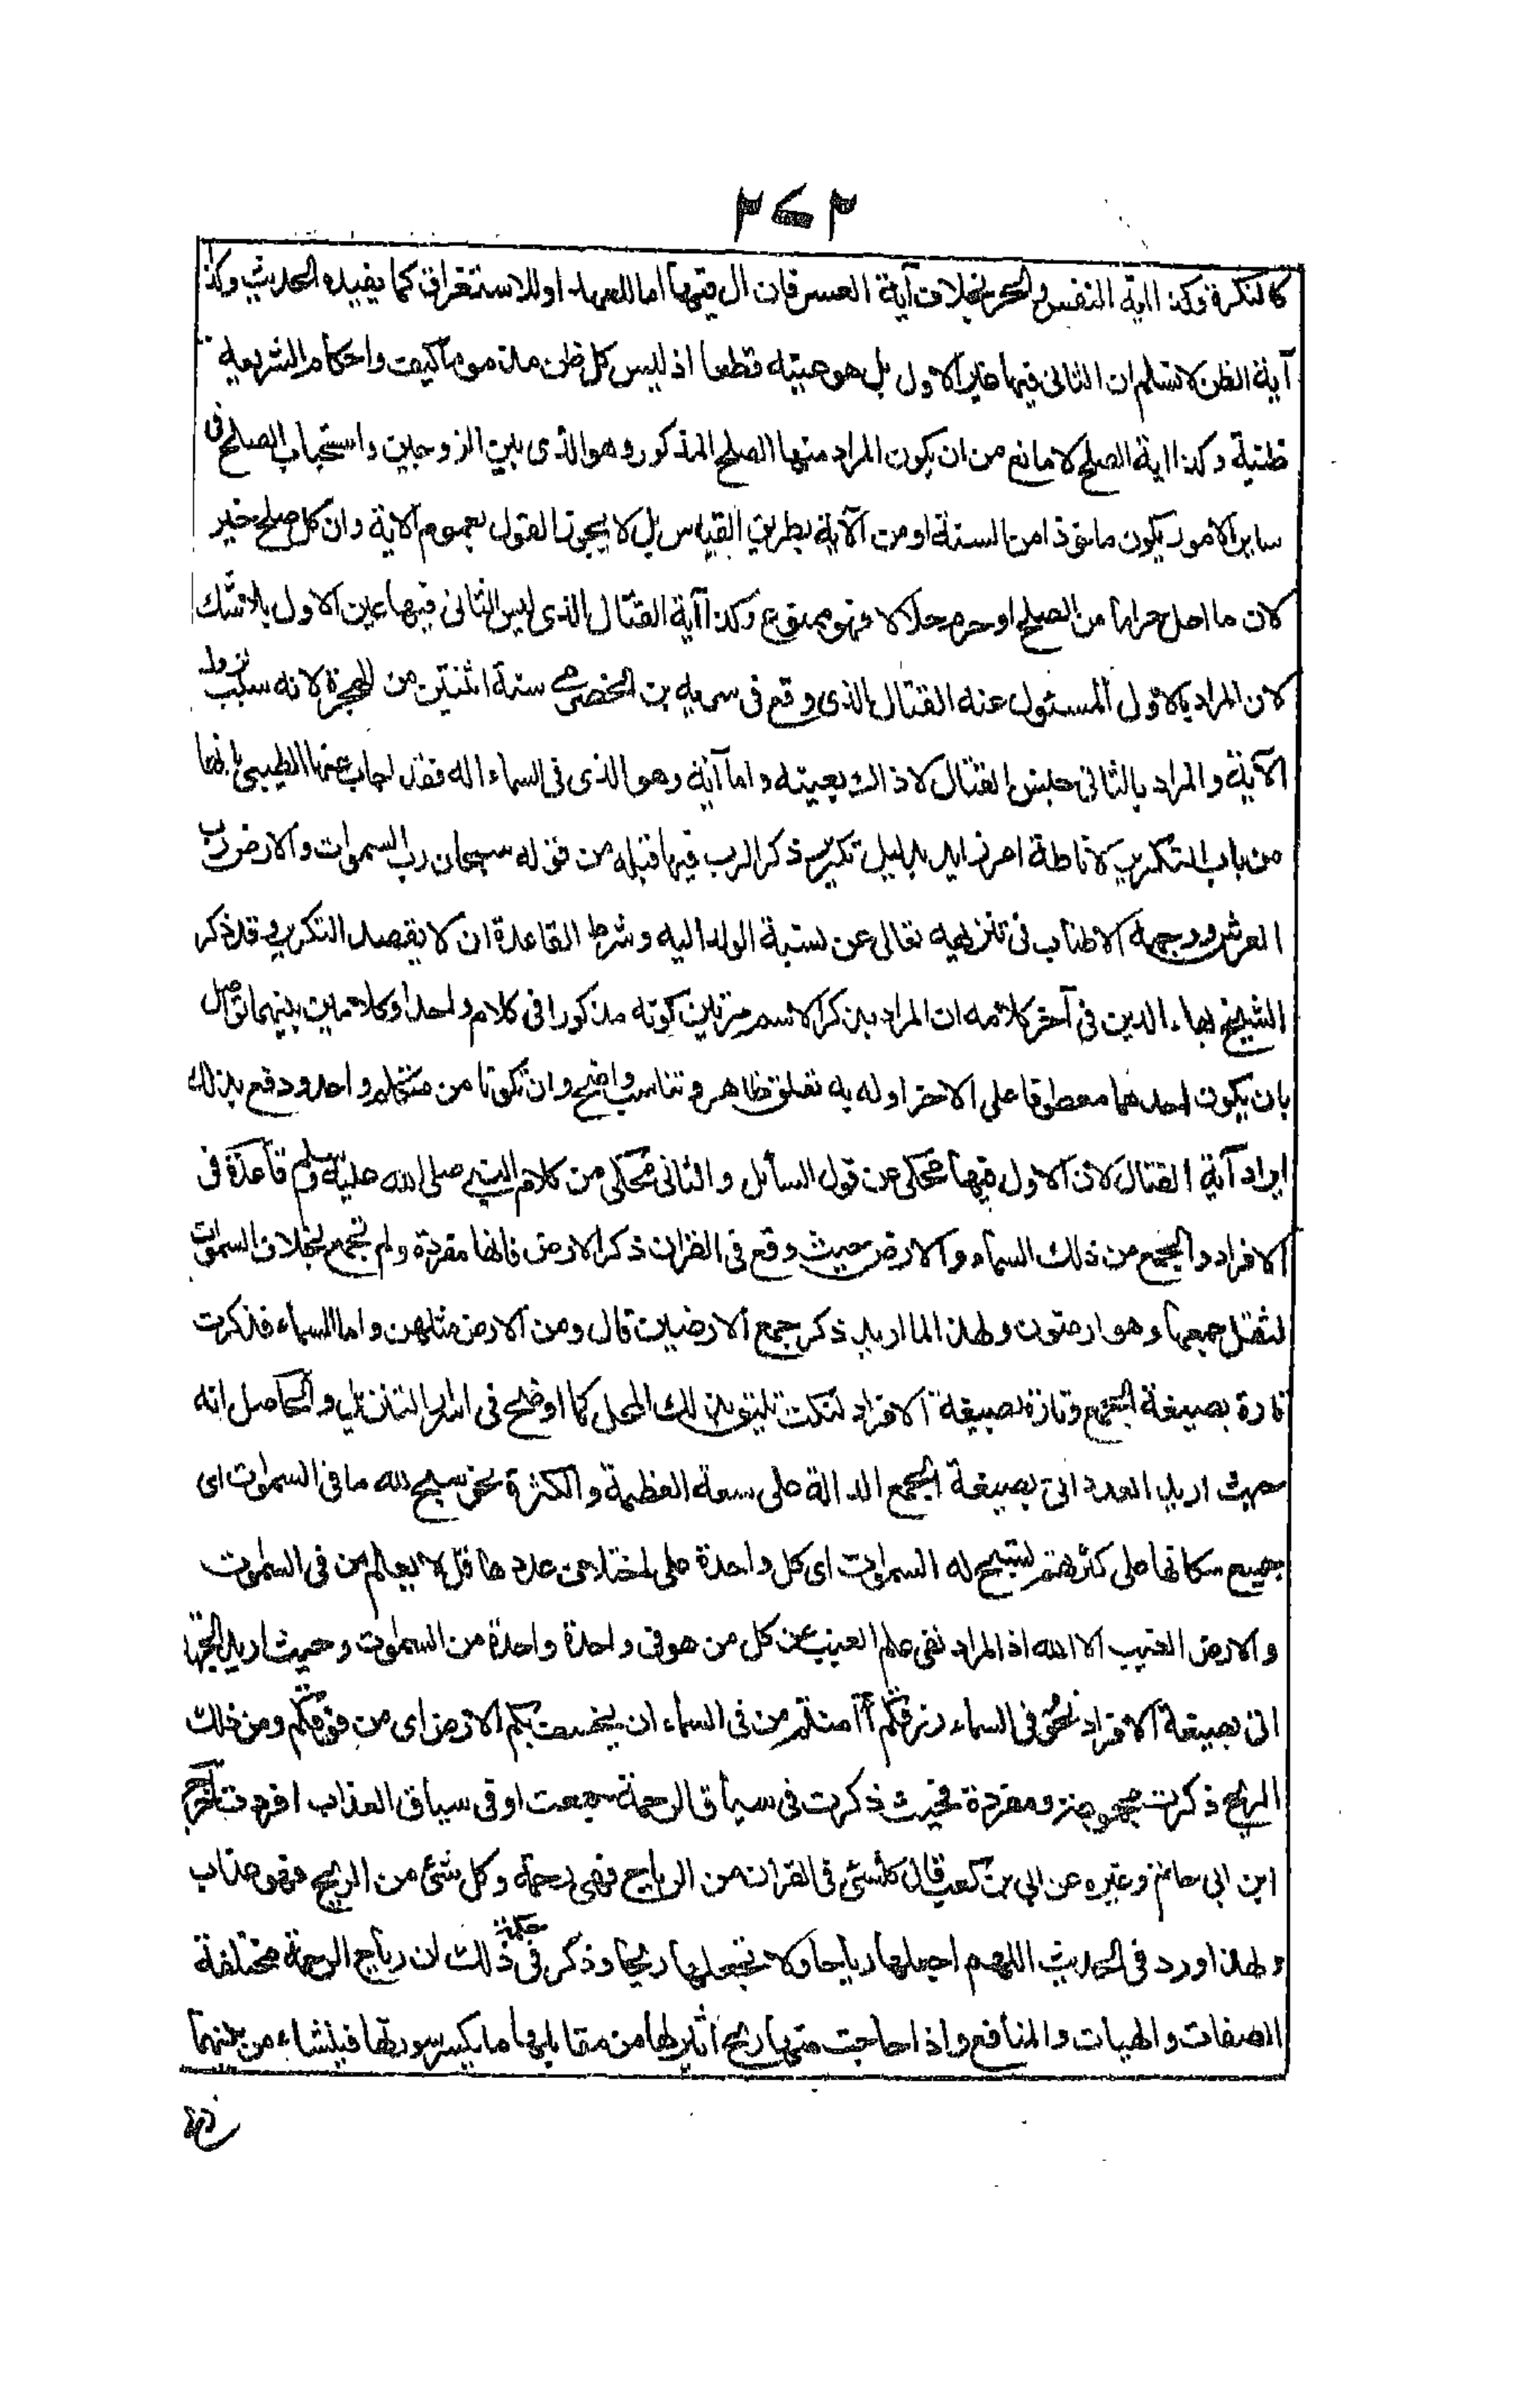 ٢٧٢
كالنكرة وكذا اية النفس والحر بخلاف آية العسر فان ال فيها اما للعهد او للاستغراق كما يفيده الحديث وكذا
آية الظن لا نسلم ان الثانى فيها غير الاول بل هو عينه قطعا اذ ليس كل ظن مذموما كيف واحكام الشريعة
ظنية وكذا اية الصلح لا مانع من ان يكون المراد منها الصلح المذكور وهو الذى بين الزوجين واستحباب الصلح فى
ساير الامور يكون ماخوذا من السنة او من الآية بطريق القياس بل لا يجوز القول بعموم الاية وان كل صلح خير
لان ما احل حراما من الصلح او حرم حلالا فهو ممنوع وكذا آية القتال الذى ليس الثانى فيها عين الاول بلا شك
لان المراد بالاول المسئول عنه القتال الذى وقع فى سرية بن الحضرمى سنة اثنتين من الهجرة لانه سبب نزول
الآية والمراد بالثانى جنس القتال لا ذاك بعينه واما آية وهو الذى فى السماء اله فقد اجاب عنها الطيبى بانها
من باب التكرير لافاطة امر زايد بدليل تكرير ذكر الرب فيها قبله من قوله سبحان رب السموات والارض رب
العرش ووجهه الاطناب فى تنزيهه تعالى عن نسبة الولد اليه وشرط القاعدة ان لا يقصد التكرير وقد ذكر
الشيخ بهاء الدين فى آخر كلامه ان المراد بذكر الاسم مرتين كونه مذكورا فى كلام واحد او كلامين بينهما تواصل
بان يكون احدهما معطوفا على الاخر اوله به تعلق ظاهر وتناسب واضح وان يكونا من متكلم واحد ودفع بذلك
ايراد آية القتال لان الاول فيها محكى عن قول السائل والثانى محكى من كلام النبى صلى الله عليه وسلم قاعدة فى
الافراد والجمع من ذلك السماء والارض حيث وقع فى القران ذكر الارض فانها مفردة ولم تجمع بخلاف السموات
لثقل جمعها وهو ارضون ولهذا لما اريد ذكر جمع الارضين قال ومن الارض مثلهن واما السماء فذكرت
تارة بصيغة الجمع وتارة بصيغة الافراد لنكت تليق بذلك المحل كما اوضح فى اسرار التنزيل والحاصل انه
حيث اريد العدد اتى بصيغة الجمع الدالة على سعة العظمة والكثرة نحو سبح لله ما فى السموات اى
جميع سكانها على كثرهتم تسبح له السموات اى كل واحدة على اختلاف عددها قل لا يعلم من فى السموات
والارض الغيب الا الله اذ المراد نفى علم الغيب عن كل من هو فى واحدة واحدة من السموات وحيث اريد الجهة
اتى بصيغة الافراد نحو فى السماء رزقكم أأمنتم من فى السماء ان يخسف بكم الارض اى من فوقكم ومن ذلك
الريح ذكرت مجموعة ومفردة فحيث ذكرت فى سياق الرحمة جمعت او فى سياق العذاب افردت اخرج
ابن ابى حاتم وغيره عن ابى بن كعب قال كل شئ فى القران من الرياح فهى رحمة وكل شئ من الريح فهو عذاب
ولهذا ورد فى الحديث اللهم اجعلها رياحا ولا تجعلها ريحا وذكر فى حكمة ذلك ان رياح الرحمة مختلفة
الصفات والهيات والمنافع واذا هاجت منها ريح اثير لها من مقابلها ما يكسر سورتها فينشاء من بينهما